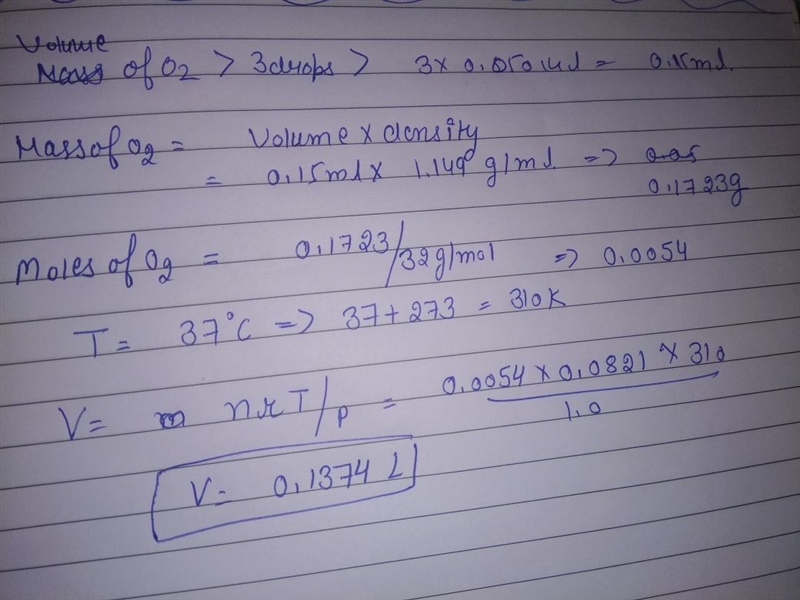 Volume
Mass of O2 > 3drops > 3 x 0.050 ml = 0.15ml.
Mass of O2 = Volume x density
= 0.15ml x 1.149 g/ml => 0.05
0.1723g
Moles of O2 = 0.1723/32g/mol => 0.0054
T = 37°C => 37 + 273 = 310K
V = nRT/P = 0.0054 x 0.0821 x 310
1.0
V = 0.1374 L